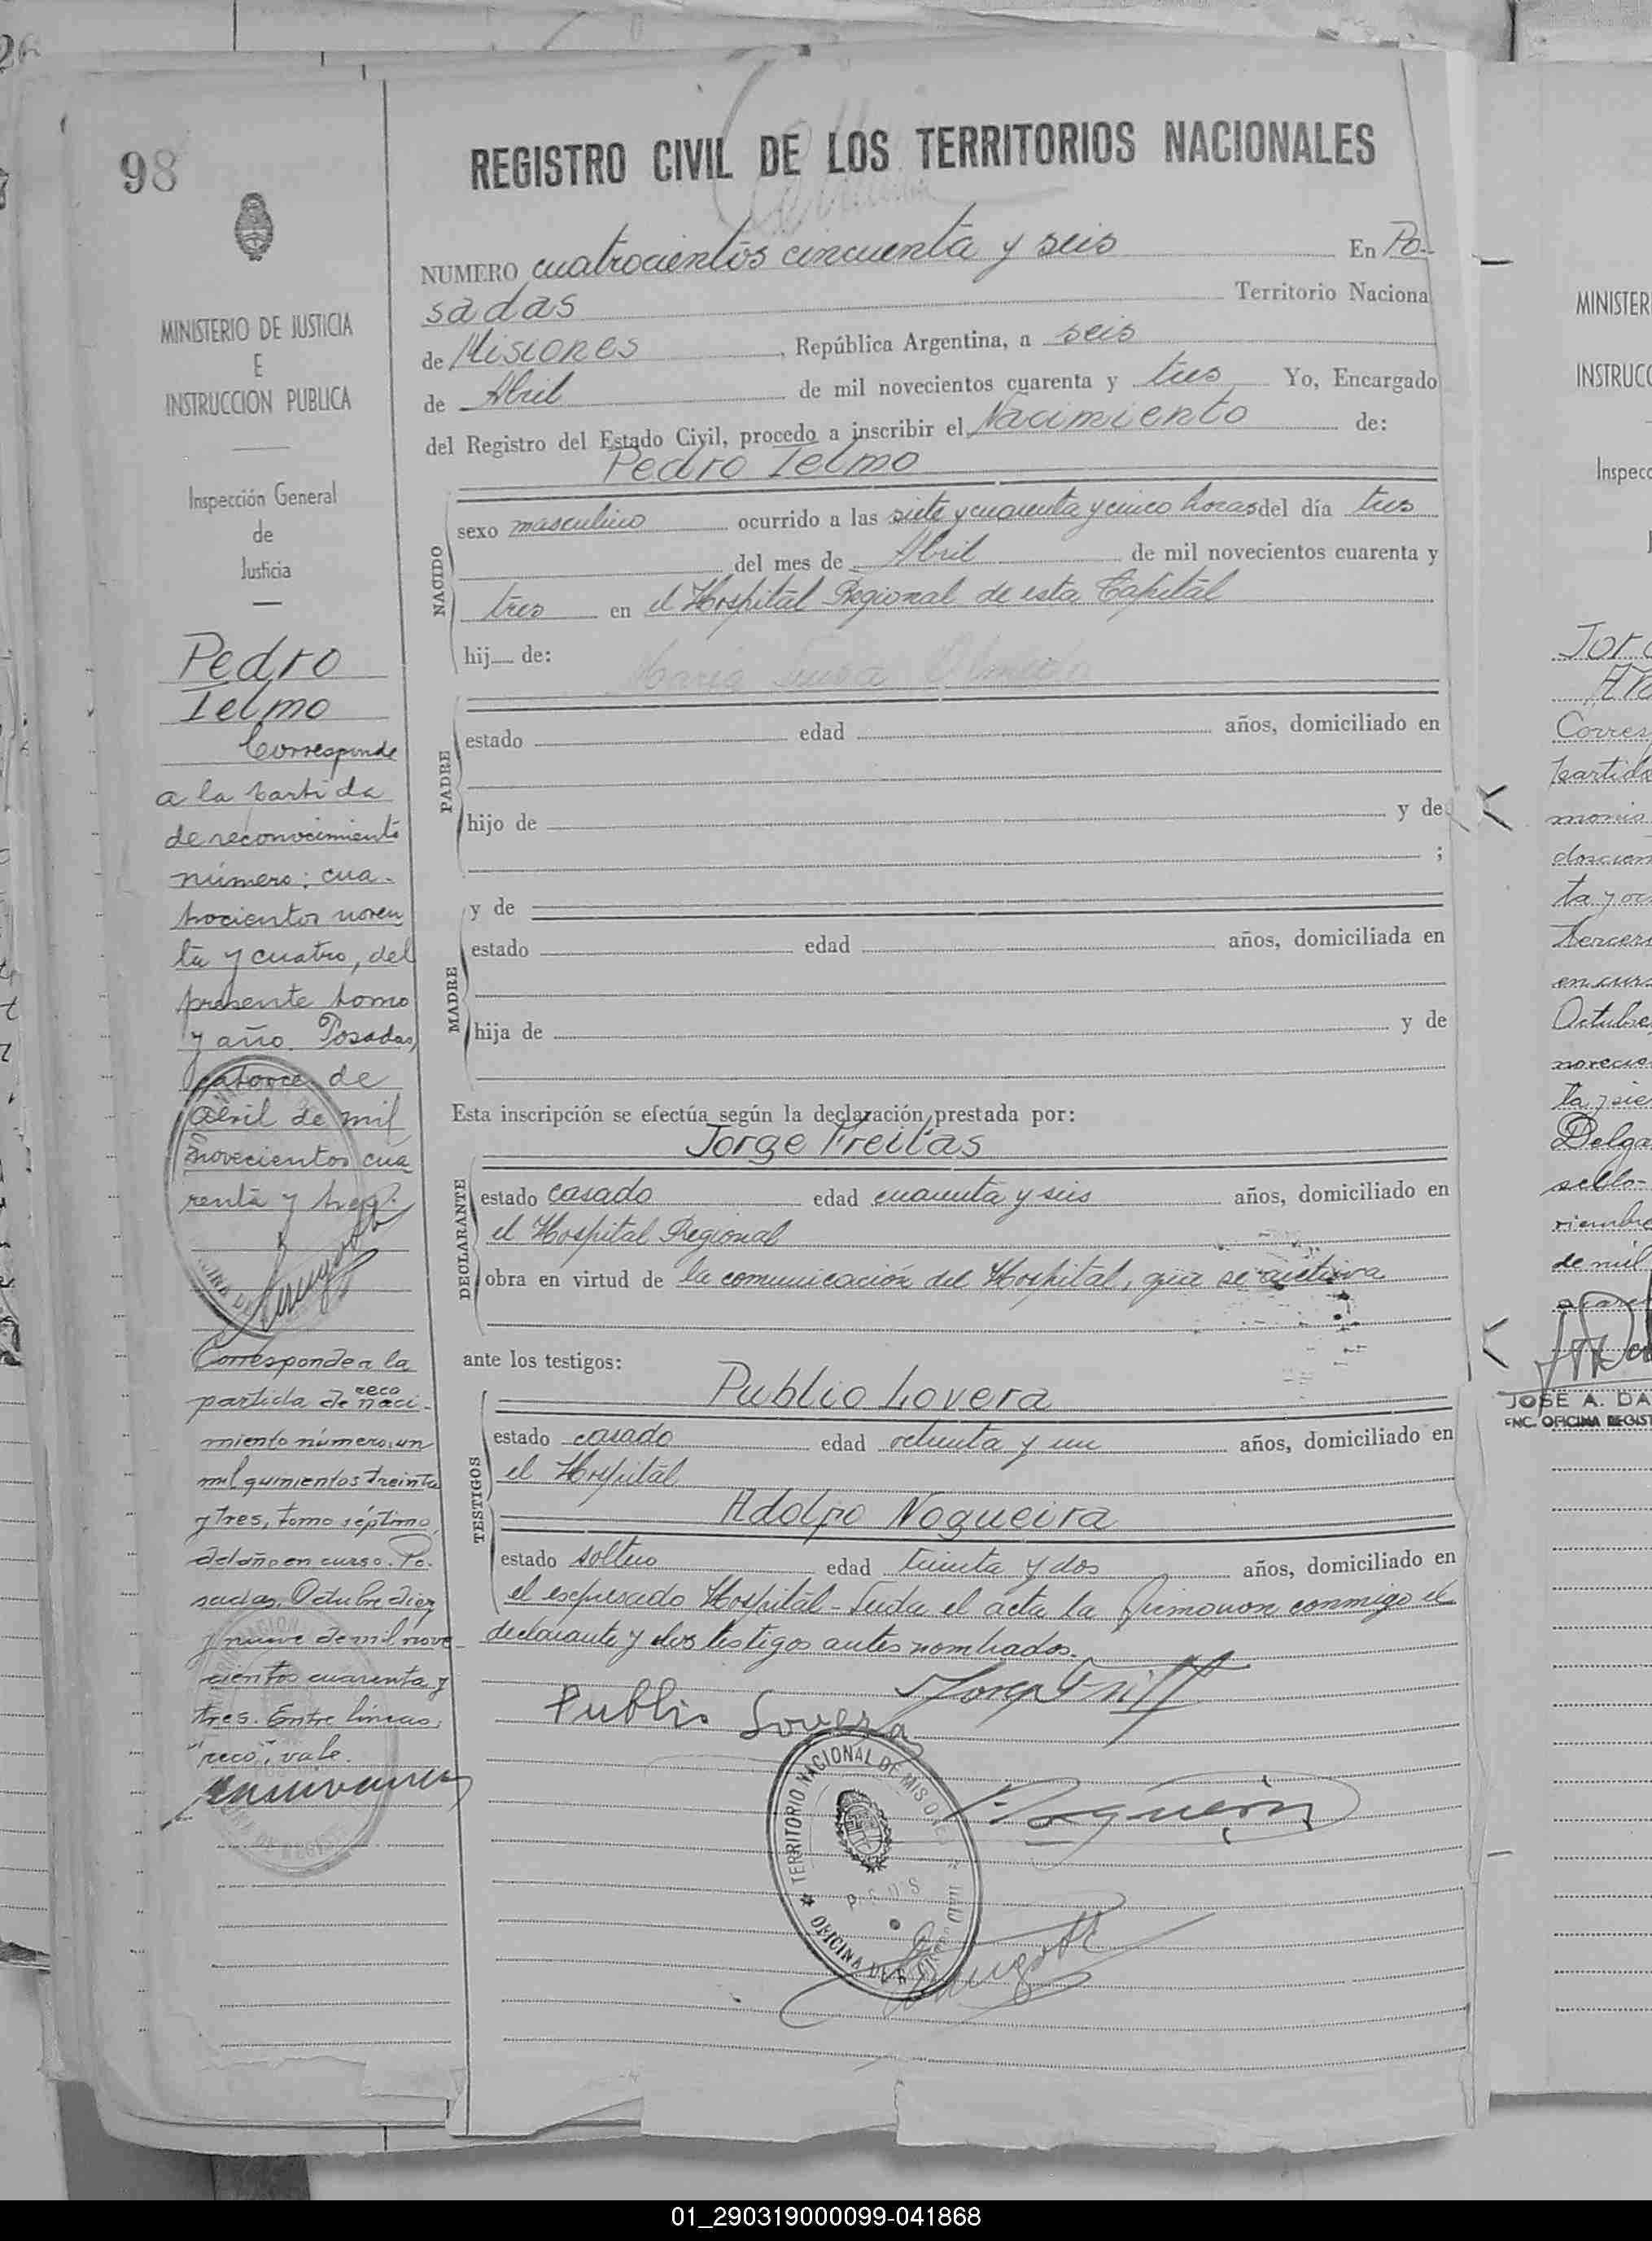 98
REGISTRO CIVIL DE LOS TERRITORIOS NACIONALES
NUMERO cuatrocientos cincuenta y seis En Po-
sadas Territorio Naciona
de Misiones, República Argentina, a seis
de Abril de mil novecientos cuarenta y tres Yo, Encargado
del Registro del Estado Civil, procedo a inscribir el Nacimiento de:
Pedro Telmo
NACIDO
sexo masculino ocurrido a las siete y cuarenta y cinco horas del día tres
del mes de Abril de mil novecientos cuarenta y
tres en el Hospital Regional de esta Capital
hij de:
Maria Luisa
PADRE
estado edad años, domiciliado en
hijo de y de
;
MADRE
y de
estado edad años, domiciliada en
hija de y de
Esta inscripción se efectúa según la declaración prestada por:
Jorge Freitas
DECLARANTE
estado casado edad cuarenta y seis años, domiciliado en
el Hospital Regional
obra en virtud de la comunicación del Hospital, que se archiva
ante los testigos:
TESTIGOS
Publio Lovera
estado casado edad ochenta y un años, domiciliado en
el Hospital
Adolfo Nogueira
estado soltero edad treinta y dos años, domiciliado en
el expresado Hospital - Leída el acta la firmaron conmigo el
declarante y los testigos antes nombrados.
Publio Lovera
TERRITORIO NACIONAL DE MISIONES
OFICINA DE
MINISTERIO DE JUSTICIA
E
INSTRUCCION PUBLICA
Inspección General
de
Justicia
Pedro
Telmo
Corresponde
a la partida
de reconocimiento
número: cua-
trocientos noven
ta y cuatro, del
presente tomo
y año. Posadas,
catorce de
Abril de mil
novecientos cua
renta y tres.
Corresponde a la
reco
partida de naci-
miento número: un
mil quinientos treinta
y tres, tomo séptimo,
del año en curso. Po-
sadas, Octubre diez
y nueve de mil nove
cientos cuarenta y
tres. Entre líneas:
"reco", vale.
MINISTER
INSTRUCC
Inspecc
Corres
partida
monio
doscien
ta y oc
tercero
en curs
Octubre
novecie
ta y sie
Delga
sello-
viembre
de mil
JOSE A. DA
ENC. OFICINA REGIST
01_290319000099-041868